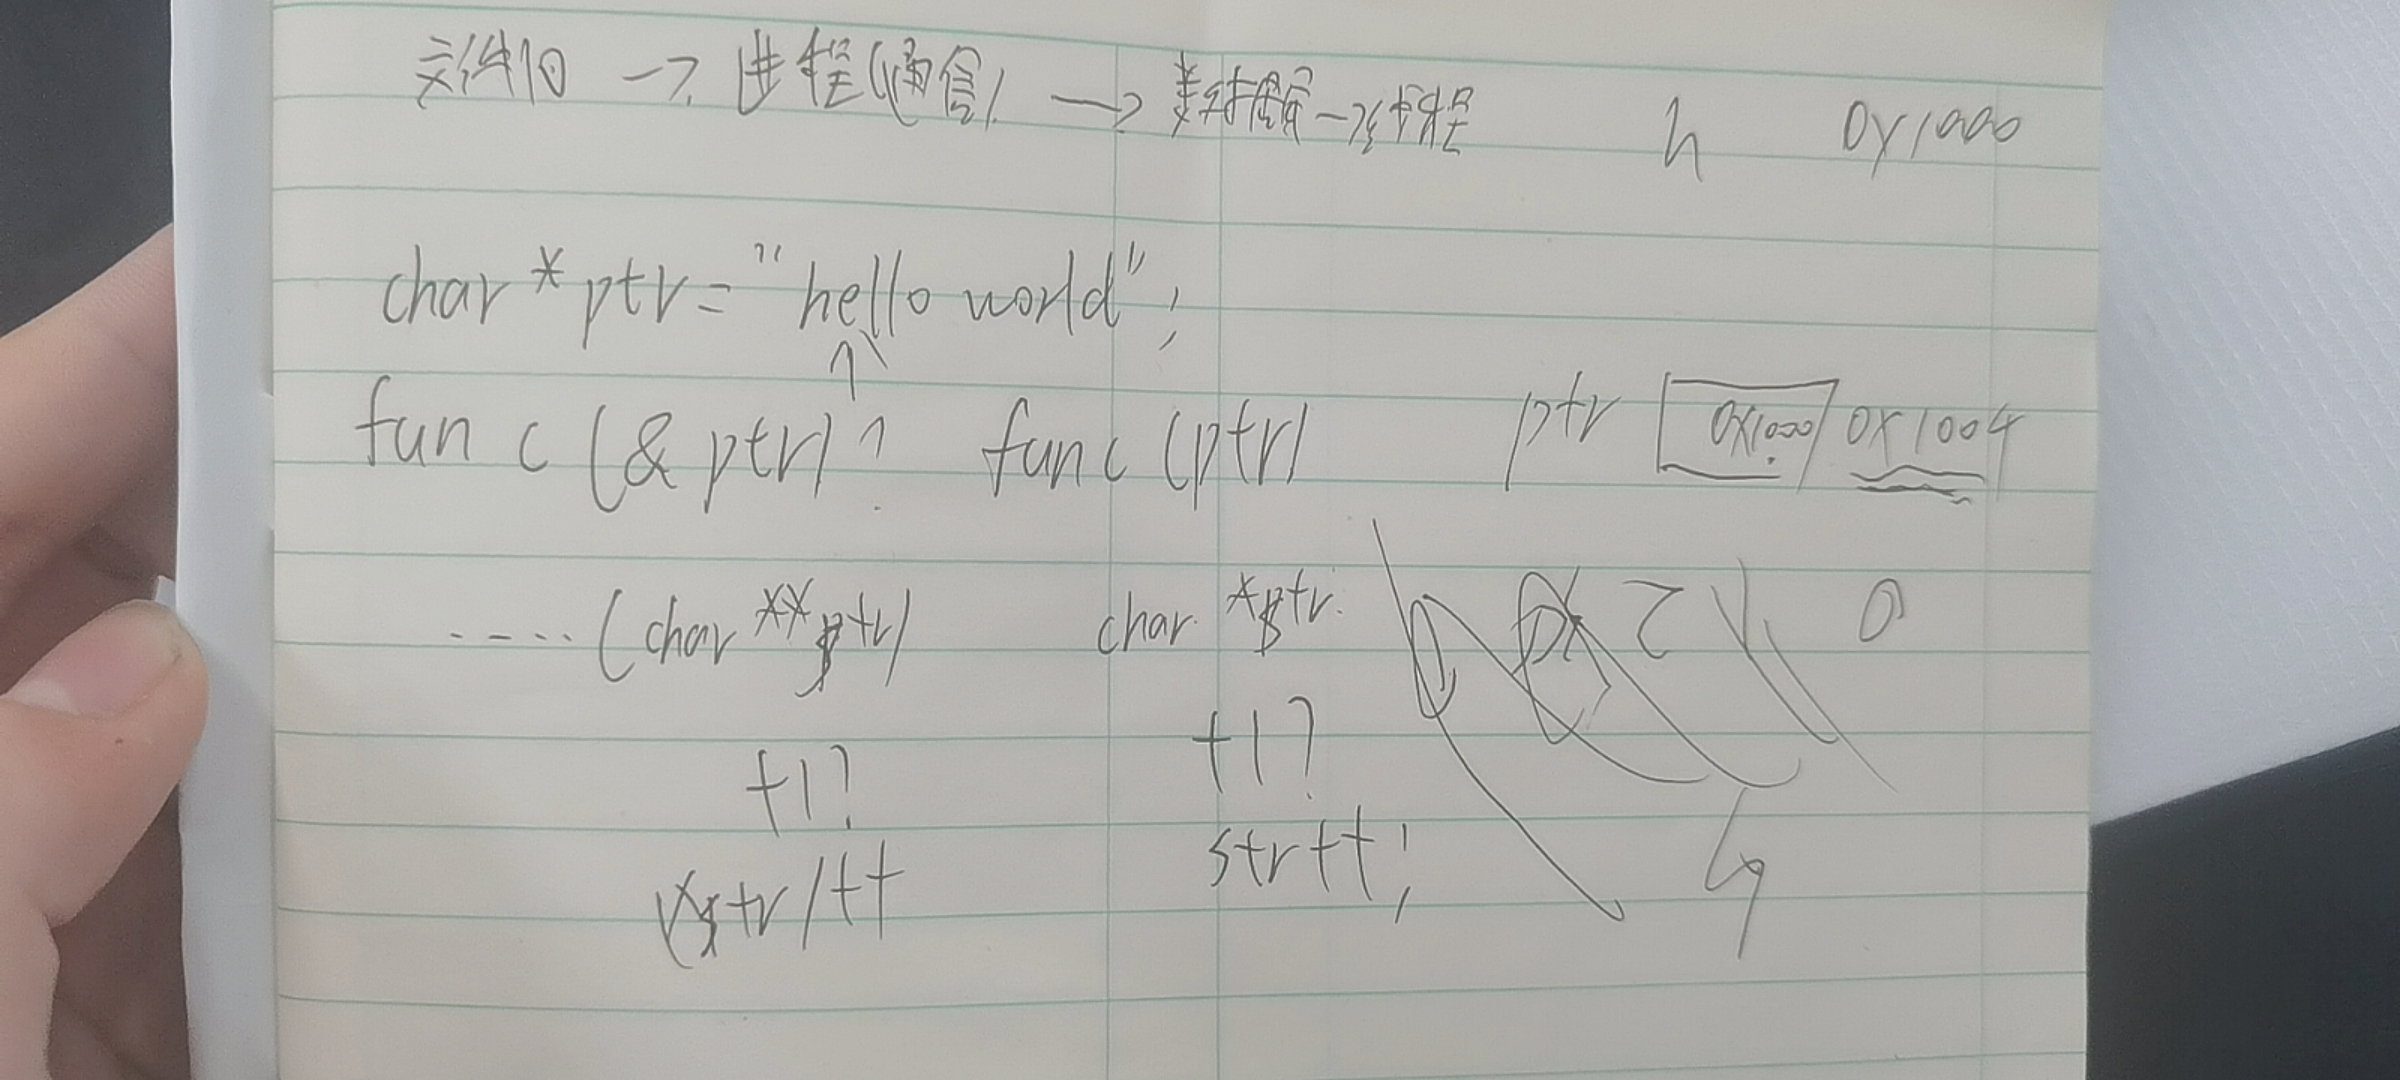 文件IO → 进程(通信) → 数据结构 → 线程 h 0x1000
char *ptr = "hello world";
func (&ptr)? func (ptr) ptr 0x1000 0x1004
....(char **ptr) char *ptr. 0
+1? +1?
(*ptr)++ str++;